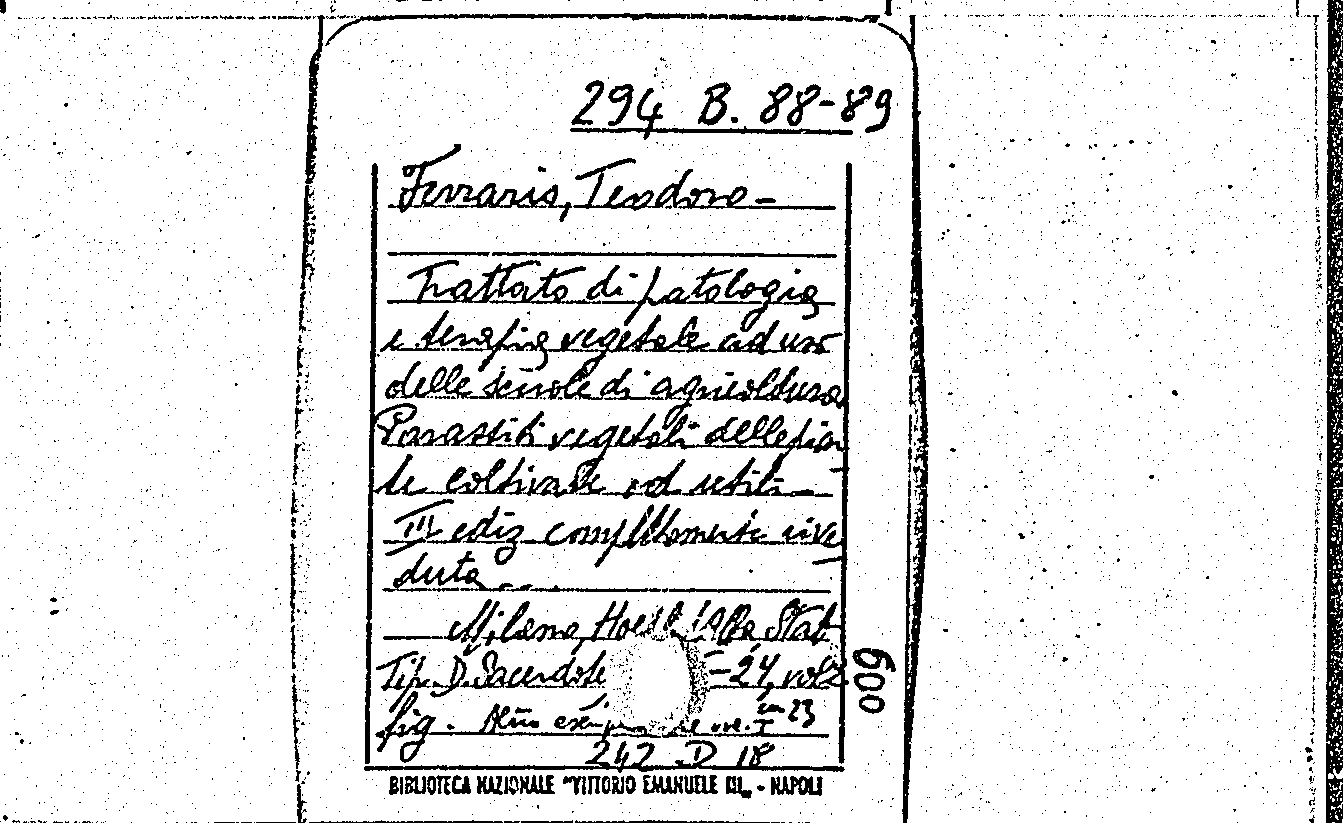 294 B. 88-89
Ferraris, Teodoro-
Trattato di patologia
e terapia vegetale ad uso
delle scuole di agricoltura
Parassiti vegetali delle pian
te coltivate od utili-
III ediz completamente rive
duta...
Milano, Hoepli Stab
Tip. D. Sacerdote -24, vol 2
fig. Altro vol. I cm 23
242 D 18
600
BIBLIOTECA NAZIONALE "VITTORIO EMANUELE III„ - NAPOLI